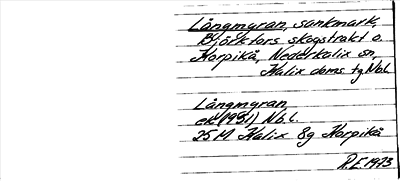 Långmyran, sankmark,
Björkfors skogstrakt o.
Korpikå, Nederkalix sn,
Kalix doms tg Nb.l.
Långmyran
ek (1951) Nb.l.
25 M Kalix 8g Korpikå
R.E. 1973